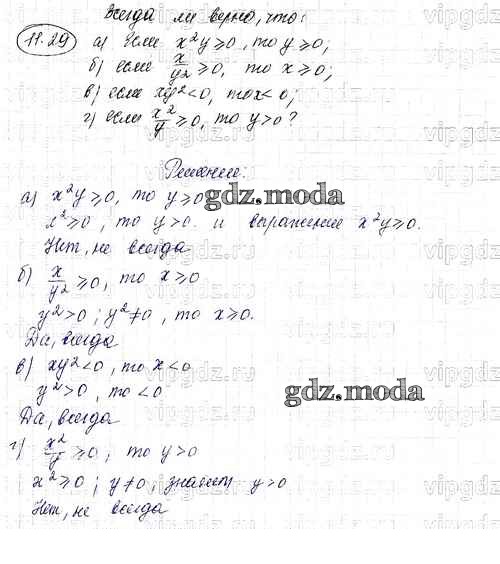 Всегда ли верно, что:
11.29 а) Если x²y ≥ 0, то y ≥ 0;
б) если x/y² ≥ 0, то x ≥ 0;
в) если xy² < 0, то x < 0;
г) если x²/y ≥ 0, то y > 0?
Решение:
а) x²y ≥ 0, то y ≥ 0
x² ≥ 0, то y > 0. и выражение x²y ≥ 0.
Нет, не всегда
б) x/y² ≥ 0, то x ≥ 0
y² > 0; y² ≠ 0, то x ≥ 0.
Да, всегда
в) xy² < 0, то x < 0
y² > 0, то < 0
Да, всегда
г) x²/y ≥ 0; то y > 0
x² ≥ 0; y ≠ 0, значит y > 0
Нет, не всегда
gdz.moda
gdz.moda
vipgdz.ru